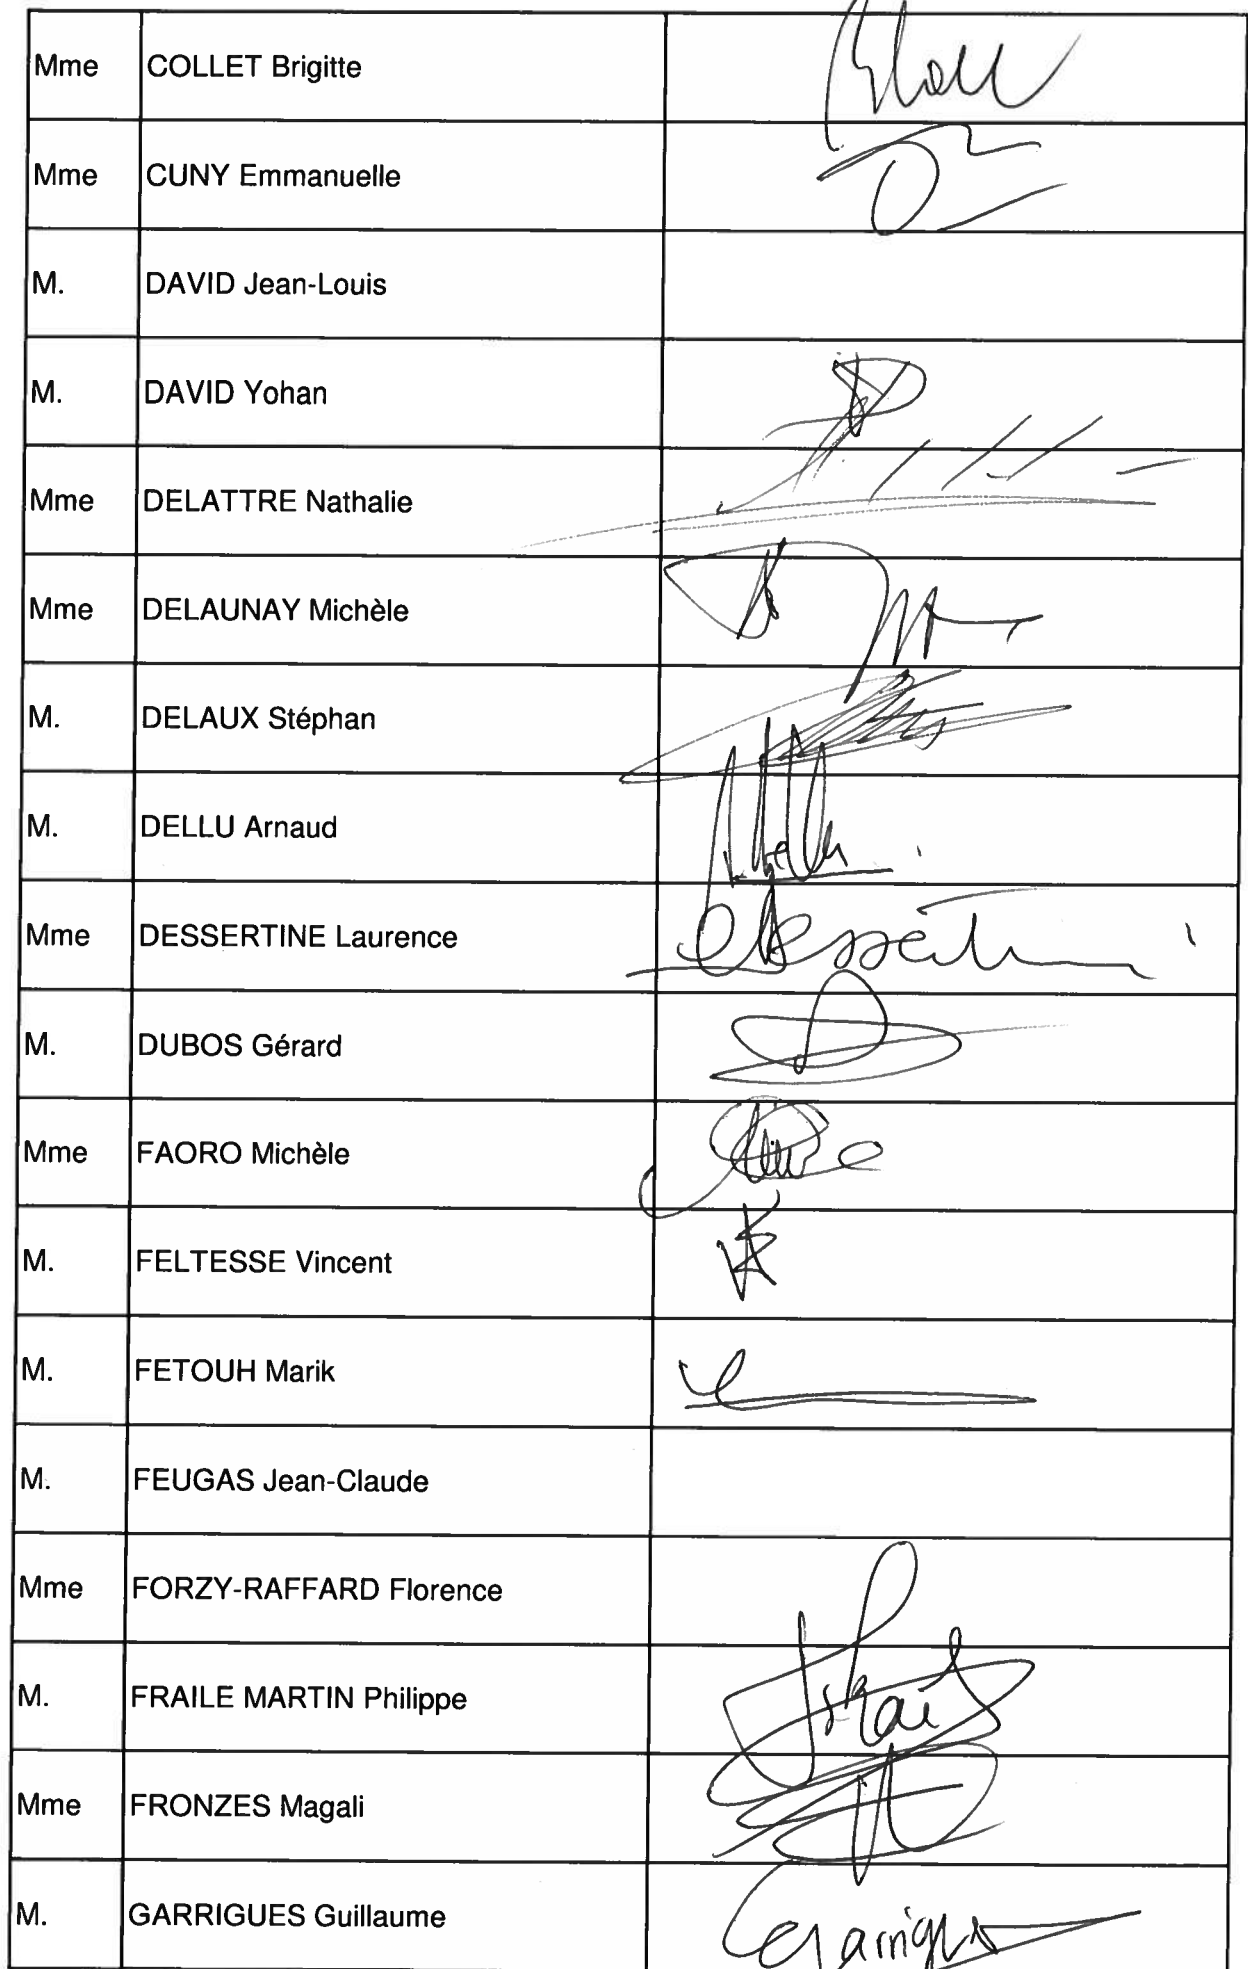 Mme COLLET Brigitte
Mme CUNY Emmanuelle
M. DAVID Jean-Louis
M. DAVID Yohan
Mme DELATTRE Nathalie
Mme DELAUNAY Michèle
M. DELAUX Stéphan
M. DELLU Arnaud
Mme DESSERTINE Laurence
M. DUBOS Gérard
Mme FAORO Michèle
M. FELTESSE Vincent
M. FETOUH Marik
M. FEUGAS Jean-Claude
Mme FORZY-RAFFARD Florence
M. FRAILE MARTIN Philippe
Mme FRONZES Magali
M. GARRIGUES Guillaume